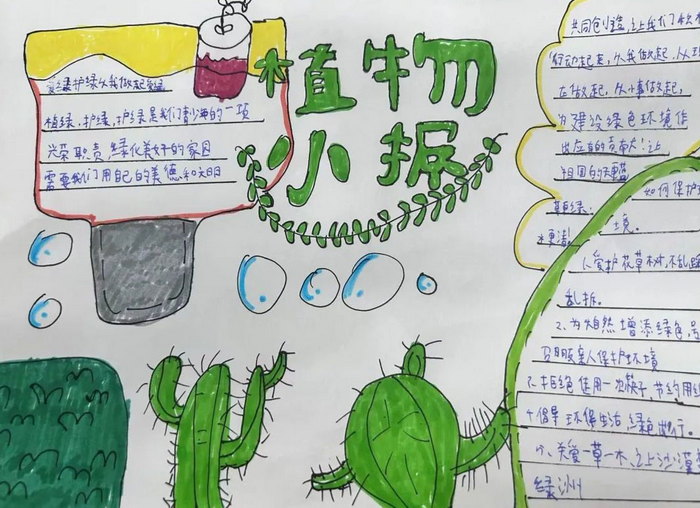 植物
小报
爱绿护绿从我做起
植绿、护绿、护绿是我们青少年的一项
光荣职责，绿化美好的家园
需要我们用自己的美德和文明
共同创造，让我们
行动起来，从我做起，从现
在做起，从小事做起，
为建设绿色环境作
出应有的贡献！让
祖国的天更蓝
草更绿，
水更清！
如何保护
境。
1、爱护花草树木，不乱
乱折。
2、为大自然增添绿色
3、拒绝使用一次筷子，节约用
4、倡导环保生活，绿色出行。
5、关爱一草一木，让沙漠
绿洲